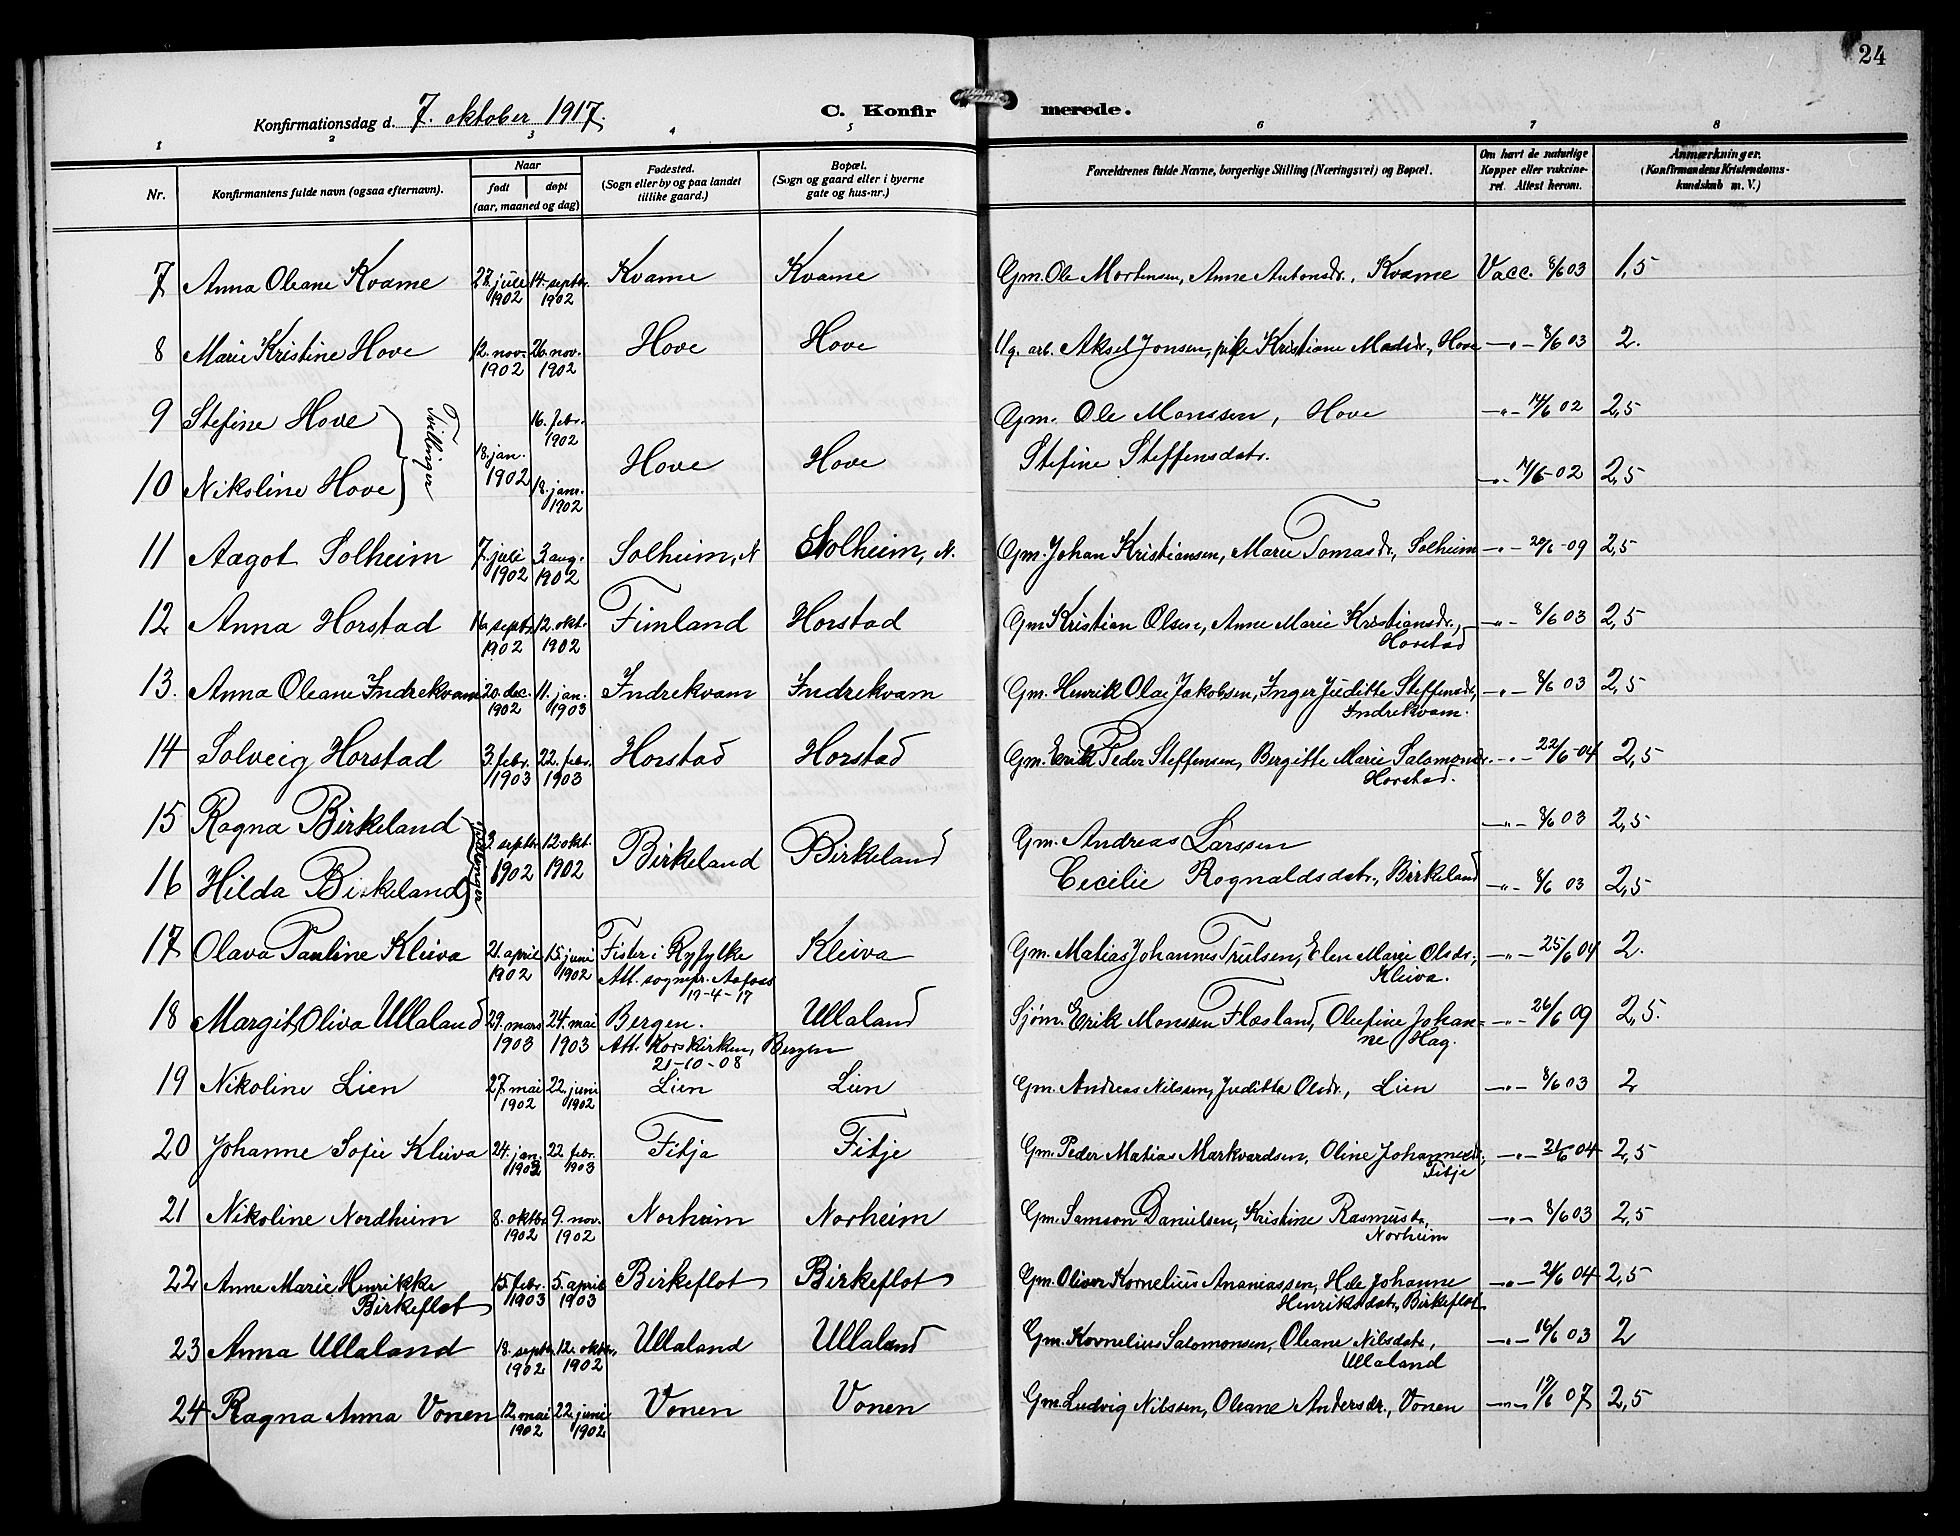 24
Konfirmationsdag d. 7. oktober 1917.
C. Konfir merede.
1 2 3 4 5 6 7 8
Nr.
Konfirmantens fulde navn (ogsaa efternavn).
Naar
født døpt
(aar, maaned og dag)
Fødested.
(Sogn eller by og paa landet
tillike gaard.)
Bopæl.
(Sogn og gaard eller i byerne
gate og hus-nr.)
Forældrenes fulde Navne, borgerlige Stilling (Næringsvei) og Bopæl.
Om havt de naturlige
Kopper eller vakcine-
ret. Attest herom.
Anmærkninger.
(Konfirmandens Kristendoms-
kundskab m. V.)
7 Anna Oleane Kvame 27. juli 14. septbr. Kvame Kvame Gm. Ole Mortensen, Anne Antonsdr., Kvame Vacc. 8/6 03 1,5
1902 1902
8 Marie Kristine Hove 12. nov. 26. nov. Hove Hove Ug. arb. Aksel Jonsen, pike Kristiane Madsdr., Hove —"— 8/6 03 2.
1902 1902
9 Stefine Hove 16. febr. Gm. Ole Monssen, Hove —"— 14/6 02 2,5
1902
Tvillinger 18. jan. 1902 Hove Hove Stefine Steffensdatr.
10 Nikoline Hove 18. janr. —"— 14/6-02 2,5
1902
11 Aagot Solheim 7. juli 3. aug. Solheim, N Solheim, N. Gm. Johan Kristiansen, Marie Tomasdr., Solheim —"— 20/6-09 2,5
1902 1902
12 Anna Horstad 16. septr. 12. okt. Fimland Horstad Gm. Kristian Olsen, Anne Marie Kristiansdr., —"— 8/6 03 2,5
1902 1902 Horstad
13. Anna Oleane Indrekvam 20. dec. 11. jan. Indrekvam Indrekvam Gm. Henrik Olai Jakobsen, Inger Juditte Steffensdr., —"— 8/6 03 2,5
1902 1903 Indrekvam.
14 Solveig Horstad 3. febr. 22. febr. Horstad Horstad Gm. Erik Peder Steffensen, Bergitte Marie Salomonsdr. —"— 22/6-04 2,5
1903 1903 Horstad.
15 Ragna Birkeland —"— 8/6 03 2,5
Tvillinger 3. septbr. 12. okt. Birkeland Birkeland Gm. Andreas Larssen
1902 1902
16 Hilda Birkeland Cecilie Rognaldsdatr., Birkeland —"— 8/6 03 2,5
17 Olava Pauline Kleiva 21. april 15. juni Fister i Ryfylke Kleiva Gm. Matias Johannes Trulsen, Elen Marie Olsdr., —"— 25/6 04 2.
1902 1902 Att. sognepr. Kleiva.
12-4-17
18 Margit Oliva Ullaland 29. mars 24. mai Bergen. Ullaland Sjøm. Erik Monssen Flesland, Olufine Johan= —"— 26/6 09 2,5.
1903 1903 Att. Korskirken, Bergen ne Hag.
21-10-08
19 Nikoline Lien 27. mai 22. juni Lien Lien Gm. Andreas Nilssen, Juditta Olsdr., Lien —"— 8/6 03 2
1902 1902
20 Johanne Sofie Kleiva 24. jan. 22 febr. Fitja Fitje Gm. Peder Matias Markvardsen, Oline Johannesdr., —"— 21/6 04 2,5
1903 1903 Fitje
21 Nikoline Nordheim 8. oktbr 9. nov. Norheim Norheim Gm. Samson Danielsen, Kristine Rasmusdr., —"— 8/6 03 2,5
1902 1902 Norheim
22 Anne Marie Henrikke 15. febr. 5. april Birkeflot Birkeflot Gm. Oliver Kornelius Ananiassen, Hele Johanne —"— 21/6 04 2,5
Birkeflot 1903 1903 Henriksdatr, Birkeflot
23 Anna Ullaland 18. septbr. 12. oktbr. Ullaland Ullaland Gm. Kornelius Salomonsen, Oleane Nilsdatr., —"— 16/6 03 2
1902 1902 Ullaland
24 Ragna Anna Vonen 12. mai 22. juni Vonen Vonen Gm. Ludvig Nilssen, Oleane Andersdr., Vonen —"— 19/6 07 2,5
1902 1902